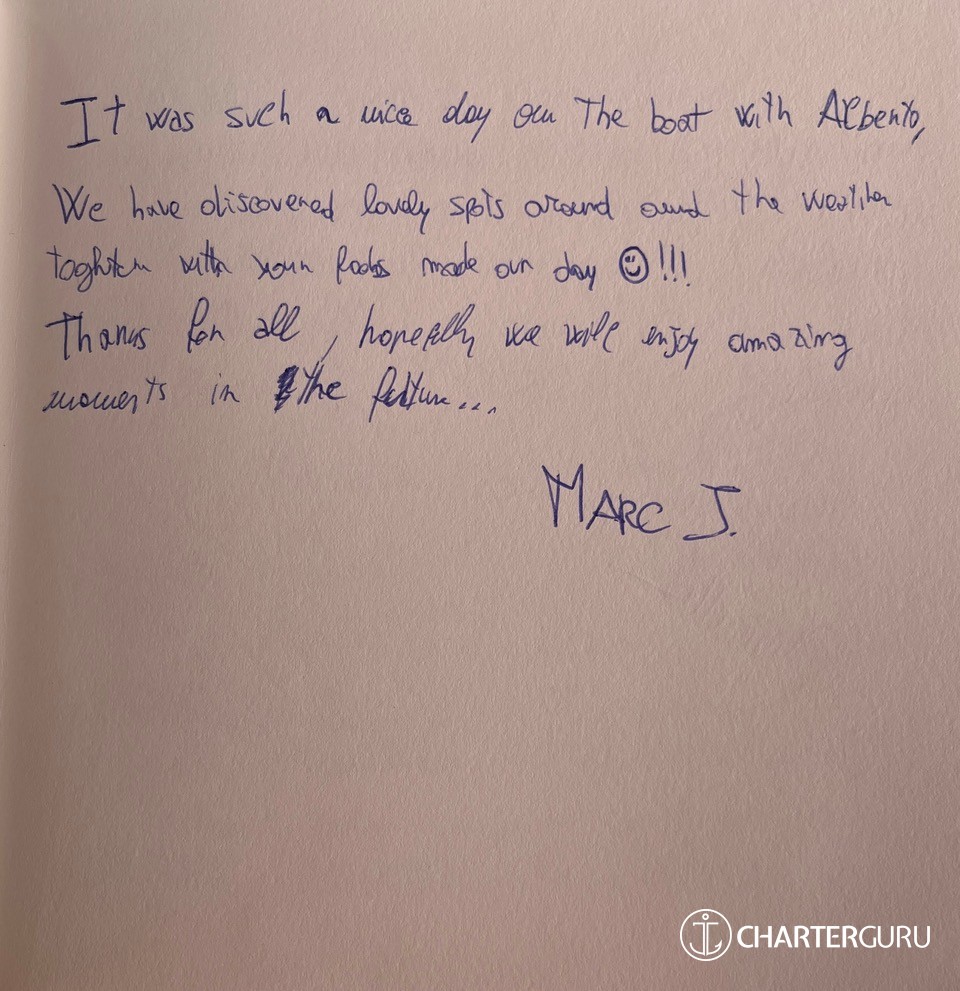 It was such a nice day on the boat with Alberto,
We have discovered lovely spots around and the weather
toghter with your foods made our day ☺!!!
Thanks for all, hopefully we will enjoy amazing
moments in the future...
MARC J.
CHARTERGURU